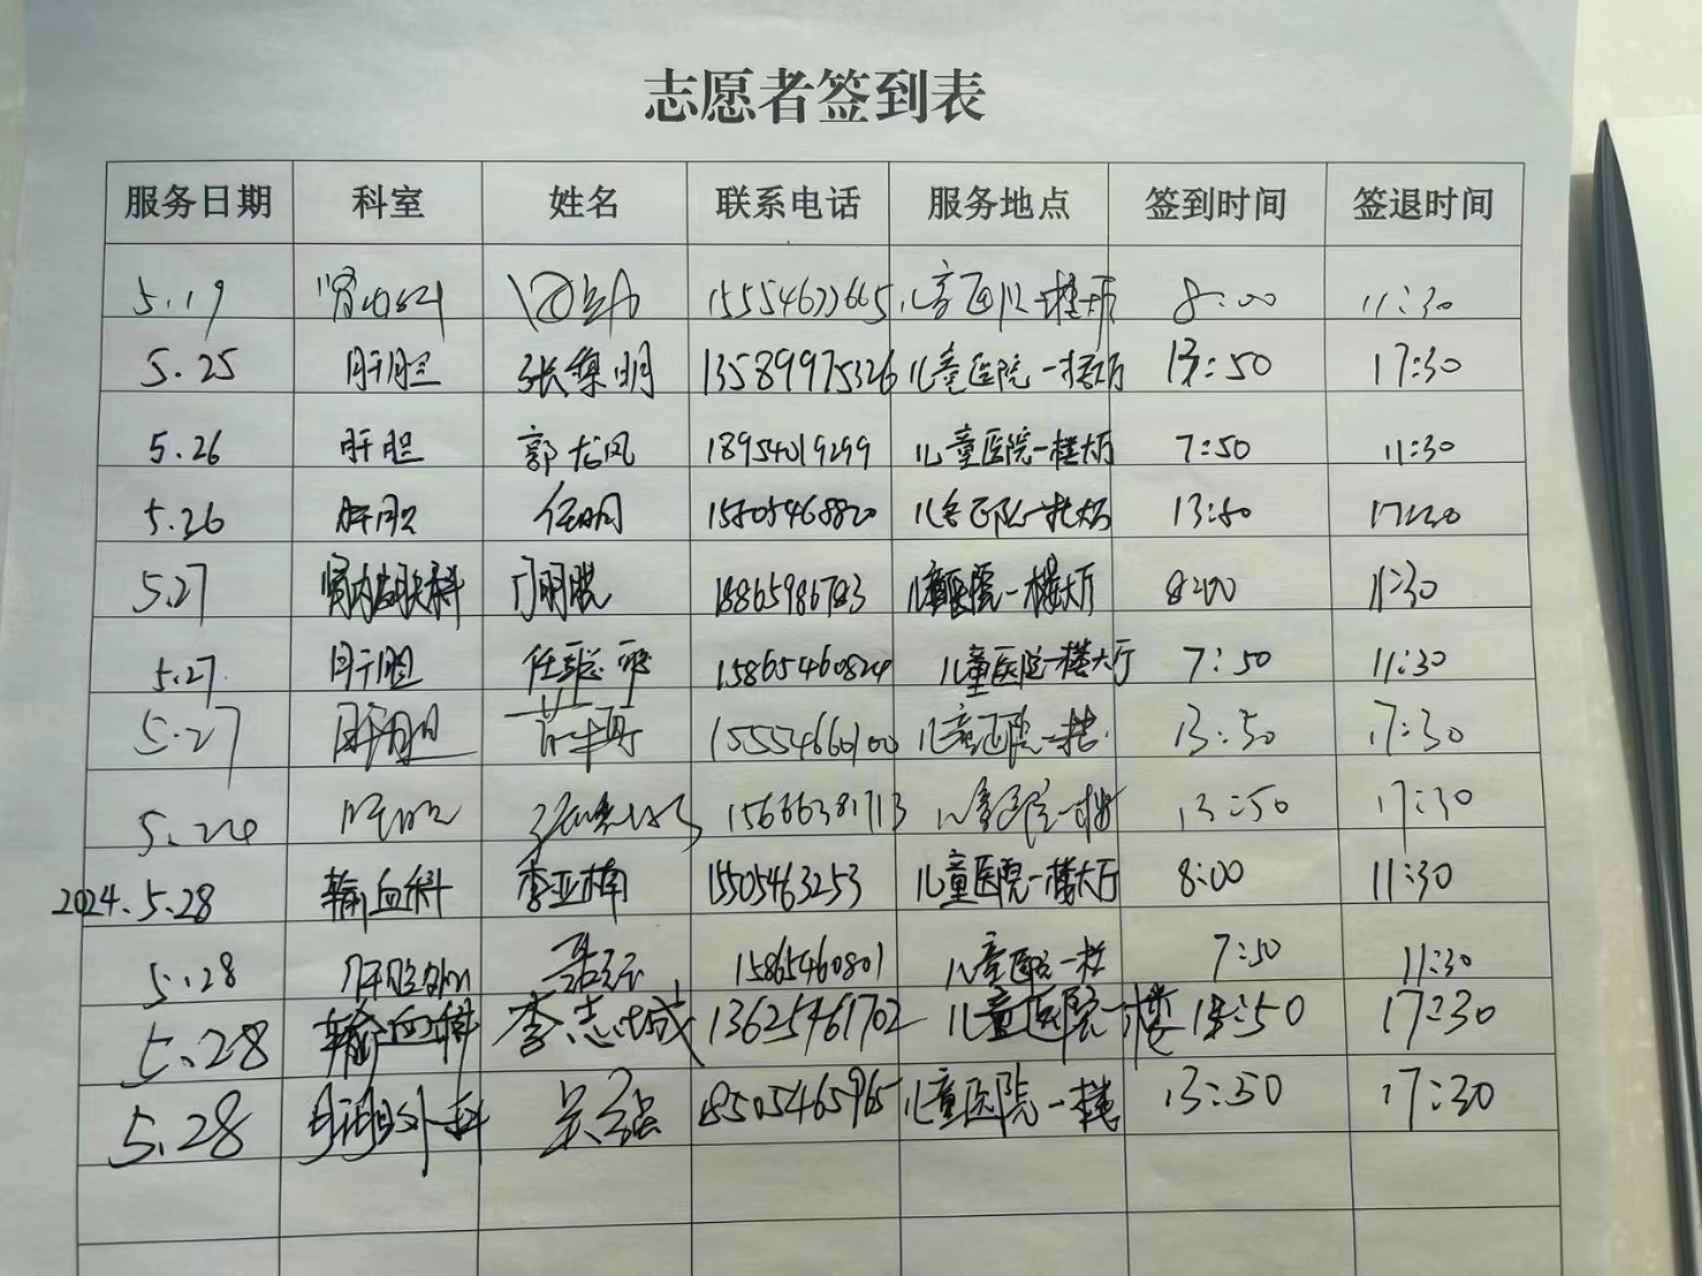 志愿者签到表
服务日期 科室 姓名 联系电话 服务地点 签到时间 签退时间
5.19 肾内科 儿童医院一楼大厅 8:00 11:30
5.25 肝胆 张集明 13589975326 儿童医院一楼大厅 13:50 17:30
5.26 肝胆 郭龙凤 18954019299 儿童医院一楼大厅 7:50 11:30
5.26 肝胆 儿童医院一楼大厅 13:50 17:30
5.27 肾内皮肤科 儿童医院一楼大厅 8:00 11:30
5.27 肝胆 15865460824 儿童医院一楼大厅 7:50 11:30
5.27 肝胆 15554660100 儿童医院一楼 13:50 17:30
肝胆 15666381713 儿童医院一楼 13:50 17:30
2024.5.28 输血科 李亚楠 15505463253 儿童医院一楼大厅 8:00 11:30
5.28 肝胆外 15865460801 儿童医院一楼 7:50 11:30
5.28 输血科 李志城 13625461702 儿童医院一楼 13:50 17:30
5.28 肝胆外科 吴强 18505465965 儿童医院一楼 13:50 17:30